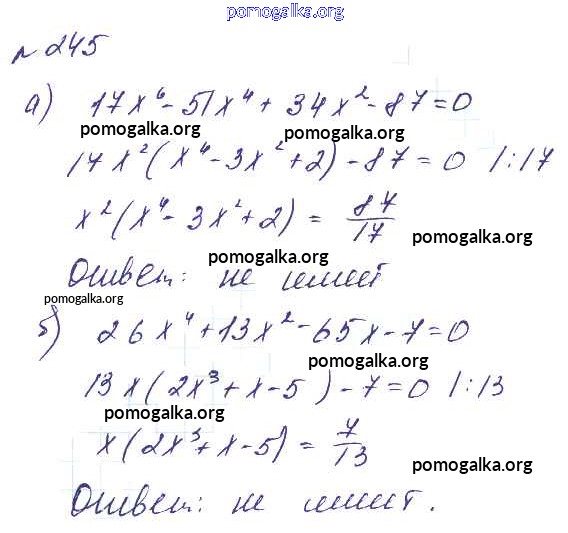 pomogalka.org
№ 245
а) 17x⁶ - 51x⁴ + 34x² - 87 = 0
pomogalka.org pomogalka.org
17x²(x⁴ - 3x² + 2) - 87 = 0 /:17
x²(x⁴ - 3x² + 2) = 87/17
pomogalka.org
pomogalka.org
Ответ: не имеет
pomogalka.org
б) 26x⁴ + 13x² - 65x - 7 = 0
pomogalka.org
13x(2x³ + x - 5) - 7 = 0 /:13
pomogalka.org
x(2x³ + x - 5) = 7/13
pomogalka.org
Ответ: не имеет.